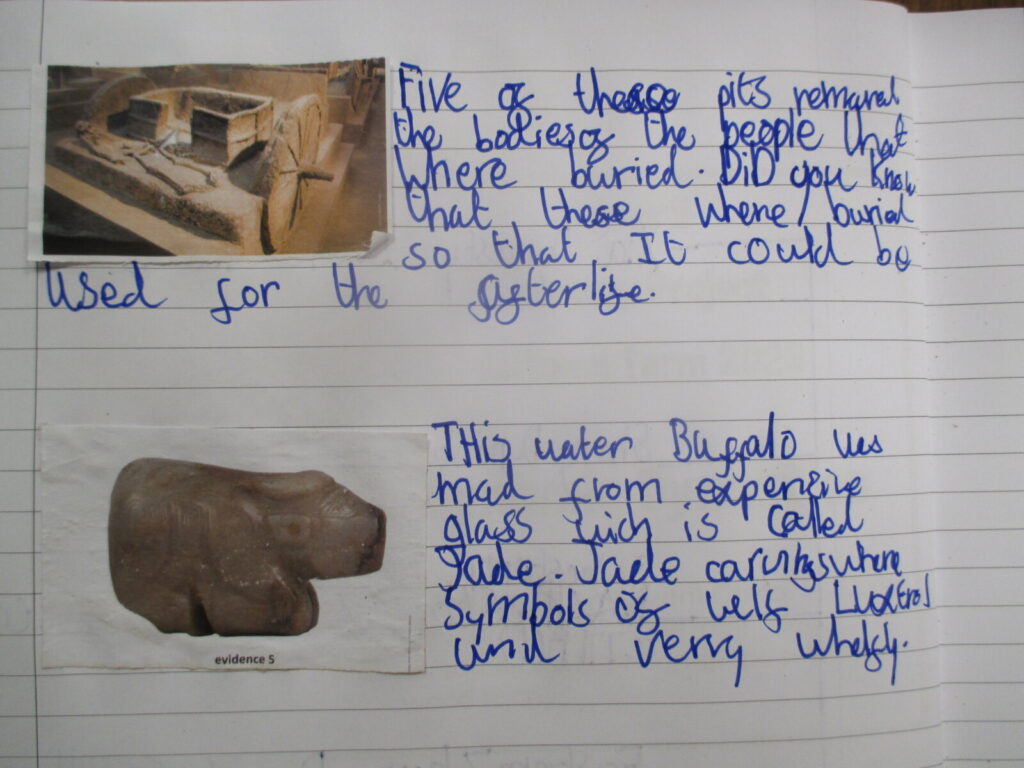 Five of these pits remaral
the bodies of the people that
where buried. DiD you know
that these where buried
so that It could be
Used for the afterlife.
THis water Buffalo wes
mad from expensive
glass fuich is called
Jade. Jade carvings where
Symbols of welf Luxtros
und verry whelfy.
evidence 5